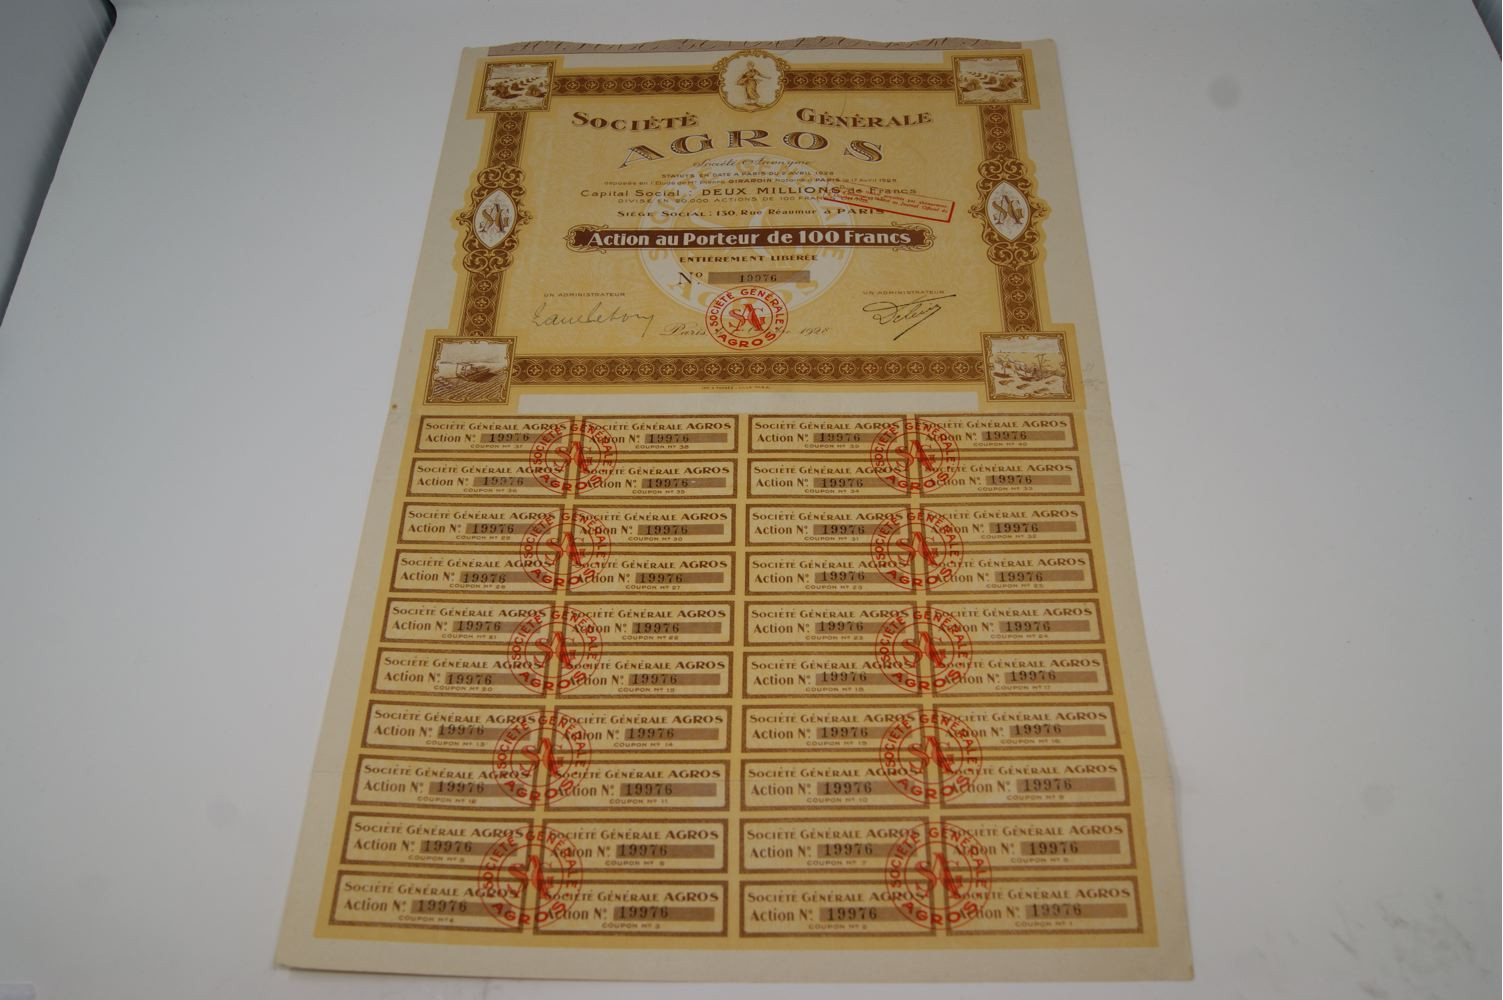 SOCIÉTÉ GÉNÉRALE
AGROS
Société Anonyme
STATUTS EN DATE A PARIS DU 2 AVRIL 1928
déposés en l'Étude de Me Pierre GIRARDIN Notaire à PARIS le 17 Avril 1928
Capital Social : DEUX MILLIONS de Francs
DIVISÉ EN 20.000 ACTIONS DE 100 FRANCS
SIÈGE SOCIAL : 130, Rue Réaumur à PARIS
Action au Porteur de 100 Francs
ENTIÈREMENT LIBÉRÉE
No 19976
UN ADMINISTRATEUR
UN ADMINISTRATEUR
Paris 1928
SOCIÉTÉ GÉNÉRALE AGROS
SOCIÉTÉ GÉNÉRALE AGROS SOCIÉTÉ GÉNÉRALE AGROS SOCIÉTÉ GÉNÉRALE AGROS SOCIÉTÉ GÉNÉRALE AGROS
Action No. 19976 Action No. 19976 Action No. 19976 Action No. 19976
COUPON No 37 COUPON No 38 COUPON No 39 COUPON No 40
SOCIÉTÉ GÉNÉRALE AGROS SOCIÉTÉ GÉNÉRALE AGROS SOCIÉTÉ GÉNÉRALE AGROS SOCIÉTÉ GÉNÉRALE AGROS
Action No. 19976 Action No. 19976 Action No. 19976 Action No. 19976
COUPON No 36 COUPON No 35 COUPON No 34 COUPON No 33
SOCIÉTÉ GÉNÉRALE AGROS SOCIÉTÉ GÉNÉRALE AGROS SOCIÉTÉ GÉNÉRALE AGROS SOCIÉTÉ GÉNÉRALE AGROS
Action No. 19976 Action No. 19976 Action No. 19976 Action No. 19976
COUPON No 29 COUPON No 30 COUPON No 31 COUPON No 32
SOCIÉTÉ GÉNÉRALE AGROS SOCIÉTÉ GÉNÉRALE AGROS SOCIÉTÉ GÉNÉRALE AGROS SOCIÉTÉ GÉNÉRALE AGROS
Action No. 19976 Action No. 19976 Action No. 19976 Action No. 19976
COUPON No 28 COUPON No 27 COUPON No COUPON No 25
SOCIÉTÉ GÉNÉRALE AGROS SOCIÉTÉ GÉNÉRALE AGROS SOCIÉTÉ GÉNÉRALE AGROS SOCIÉTÉ GÉNÉRALE AGROS
Action No. 19976 Action No. 19976 Action No. 19976 Action No. 19976
COUPON No 21 COUPON No 22 COUPON No 23 COUPON No 24
SOCIÉTÉ GÉNÉRALE AGROS SOCIÉTÉ GÉNÉRALE AGROS SOCIÉTÉ GÉNÉRALE AGROS SOCIÉTÉ GÉNÉRALE AGROS
Action No. 19976 Action No. 19976 Action No. 19976 Action No. 19976
COUPON No 20 COUPON No 19 COUPON No 18 COUPON No 17
SOCIÉTÉ GÉNÉRALE AGROS SOCIÉTÉ GÉNÉRALE AGROS SOCIÉTÉ GÉNÉRALE AGROS SOCIÉTÉ GÉNÉRALE AGROS
Action No. 19976 Action No. 19976 Action No. 19976 Action No. 19976
COUPON No 13 COUPON No 14 COUPON No 15 COUPON No 16
SOCIÉTÉ GÉNÉRALE AGROS SOCIÉTÉ GÉNÉRALE AGROS SOCIÉTÉ GÉNÉRALE AGROS SOCIÉTÉ GÉNÉRALE AGROS
Action No. 19976 Action No. 19976 Action No. 19976 Action No. 19976
COUPON No 12 COUPON No 11 COUPON No 10 COUPON No 9
SOCIÉTÉ GÉNÉRALE AGROS SOCIÉTÉ GÉNÉRALE AGROS SOCIÉTÉ GÉNÉRALE AGROS SOCIÉTÉ GÉNÉRALE AGROS
Action No. 19976 Action No. 19976 Action No. 19976 Action No. 19976
COUPON No 5 COUPON No 6 COUPON No 7 COUPON No
SOCIÉTÉ GÉNÉRALE AGROS SOCIÉTÉ GÉNÉRALE AGROS SOCIÉTÉ GÉNÉRALE AGROS SOCIÉTÉ GÉNÉRALE AGROS
Action No. 19976 Action No. 19976 Action No. 19976 Action No. 19976
COUPON No 4 COUPON No 3 COUPON No 2 COUPON No 1